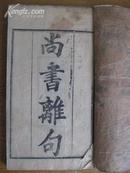 尚書離句